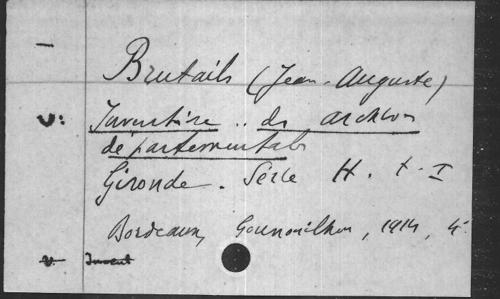 Brutails (Jean-Auguste)
V: Inventaire .. des archives
départementales
Gironde. Série H. t. I
Bordeaux, Gounouilhou, 1914, 4°
v. Invent